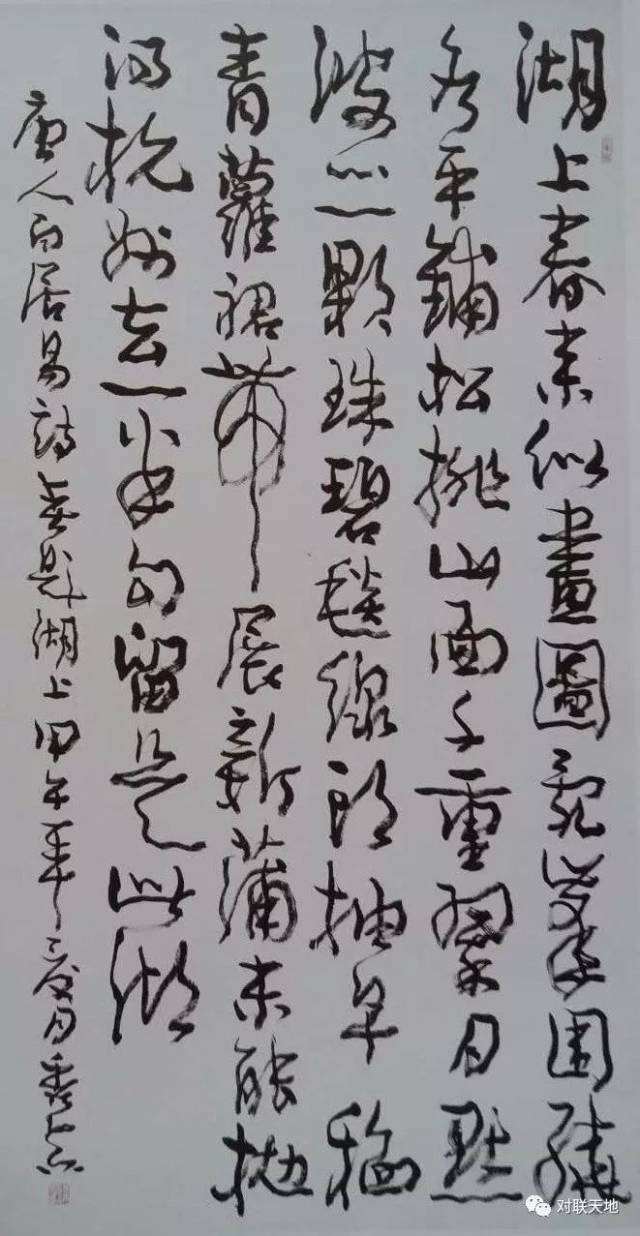 湖上春来似畫圖亂峯圍繞
水平鋪松排山面千重翠月點
波心一顆珠碧毯線頭抽早稻
青蘿裙帶展新蒲未能拋
得杭州去一半勾留是此湖
唐人白居易詩春題湖上甲午年夏月
对联天地